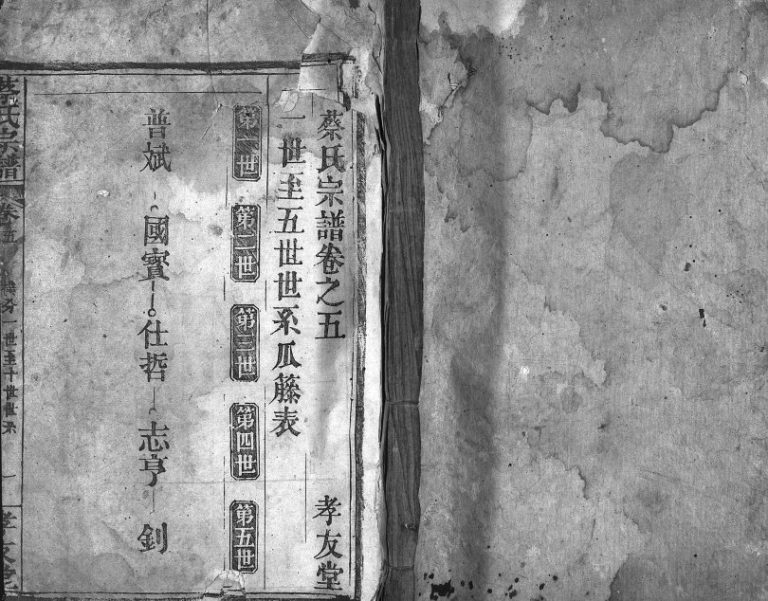 蔡氏宗譜卷之五 孝友堂
一世至五世世系瓜藤表
第一世 第二世 第三世 第四世 第五世
普斌 國寳 仕哲 志亨 釗
蔡氏宗譜 卷之五 一世至十世世系 孝友堂